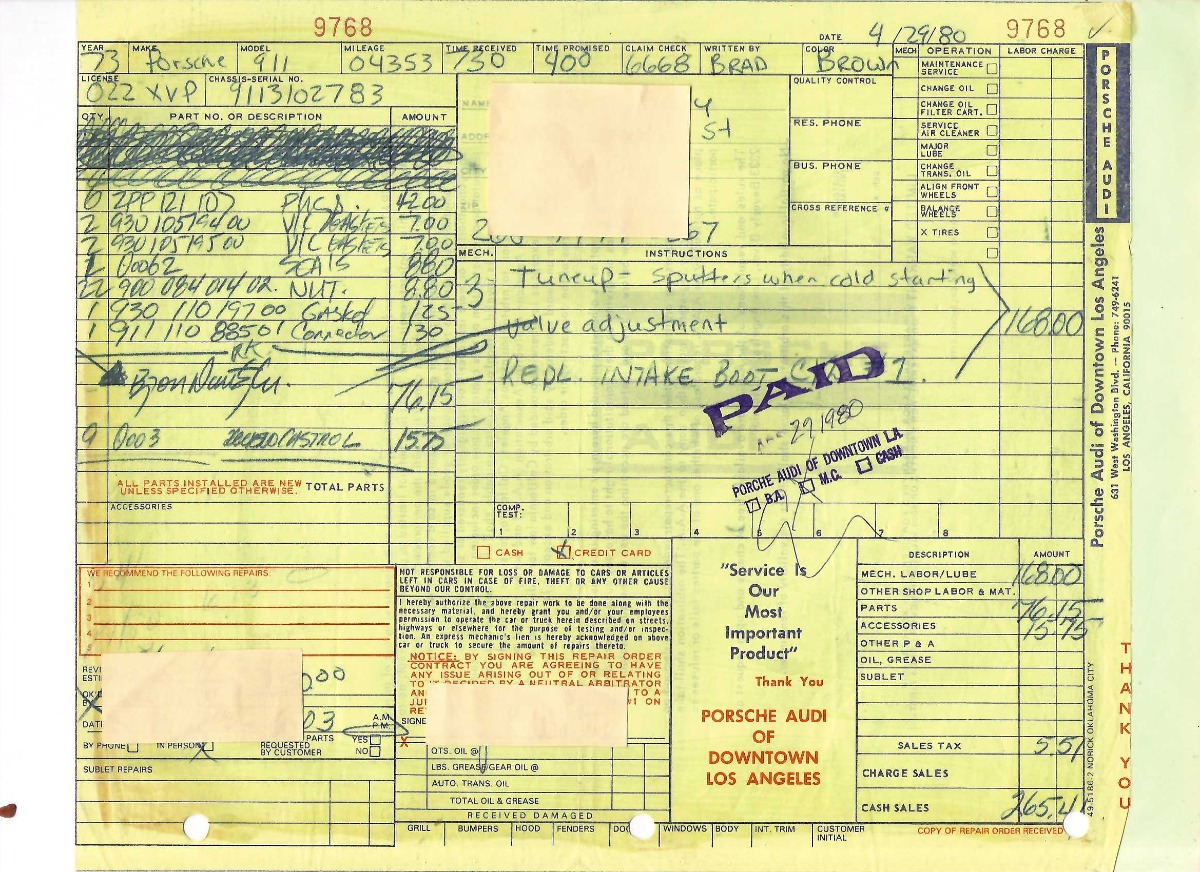 9768
9768
DATE 4/29/80
YEAR MAKE MODEL MILEAGE TIME RECEIVED TIME PROMISED CLAIM CHECK WRITTEN BY COLOR
73 Porsche 911 04353 730 400 6668 BRAD BROWN
MECH. OPERATION LABOR CHARGE
MAINTENANCE SERVICE
CHANGE OIL
CHANGE OIL FILTER CART.
SERVICE AIR CLEANER
MAJOR LUBE
CHANGE TRANS. OIL
ALIGN FRONT WHEELS
BALANCE WHEELS
X TIRES
LICENSE CHASSIS-SERIAL NO.
022 XVP 9113102783
NAME
St
QUALITY CONTROL
RES. PHONE
BUS. PHONE
CROSS REFERENCE #
QTY. PART NO. OR DESCRIPTION AMOUNT
42.00
2 930 105 194 00 V/C GASKETS 7.00
2 930 105 195 00 V/C GASKETS 7.00
00062 SEALS 8.80
22 900 084 014 02. NUT. 8.80
1 930 110 197 00 Gasket 1.25
1 911 110 885 01 Connector 1.30
RK
76.15
9 0003 CASTROL 15.75
ALL PARTS INSTALLED ARE NEW UNLESS SPECIFIED OTHERWISE. TOTAL PARTS
ACCESSORIES
MECH. INSTRUCTIONS
3 Tuneup - Sputters when cold starting
valve adjustment 168.00
REPL. INTAKE BOOT
PAID
29 1980
PORCHE AUDI OF DOWNTOWN L.A.
B.A. M.C. CASH
COMP. TEST:
1 2 3 4 5 6 7 8
CASH CREDIT CARD
WE RECOMMEND THE FOLLOWING REPAIRS:
1
2
3
4
5
BY PHONE IN PERSON
REQUESTED BY CUSTOMER
A.M. P.M.
YES
NO
SUBLET REPAIRS
NOT RESPONSIBLE FOR LOSS OR DAMAGE TO CARS OR ARTICLES
LEFT IN CARS IN CASE OF FIRE, THEFT OR ANY OTHER CAUSE
BEYOND OUR CONTROL.
I hereby authorize the above repair work to be done along with the
necessary material, and hereby grant you and/or your employees
permission to operate the car or truck herein described on streets,
highways or elsewhere for the purpose of testing and/or inspec-
tion. An express mechanic's lien is hereby acknowledged on above
car or truck to secure the amount of repairs thereto.
NOTICE: BY SIGNING THIS REPAIR ORDER
CONTRACT YOU ARE AGREEING TO HAVE
ANY ISSUE ARISING OUT OF OR RELATING
DECIDED BY A NEUTRAL ARBITRATOR
TO A
ON
X
QTS. OIL @
LBS. GREASE/GEAR OIL @
AUTO. TRANS. OIL
TOTAL OIL & GREASE
RECEIVED DAMAGED
GRILL BUMPERS HOOD FENDERS WINDOWS BODY INT. TRIM CUSTOMER INITIAL
"Service Is
Our
Most
Important
Product"
Thank You
PORSCHE AUDI
OF
DOWNTOWN
LOS ANGELES
DESCRIPTION AMOUNT
MECH. LABOR/LUBE 168.00
OTHER SHOP LABOR & MAT.
PARTS 76.15
ACCESSORIES 15.75
OTHER P & A
OIL, GREASE
SUBLET
SALES TAX 5.51
CHARGE SALES
CASH SALES 265.41
COPY OF REPAIR ORDER RECEIVED
PORSCHE AUDI
Porsche Audi of Downtown Los Angeles
631 West Washington Blvd. — Phone: 749-6241
LOS ANGELES, CALIFORNIA 90015
THANK YOU
49-5186-2 NORICK OKLAHOMA CITY